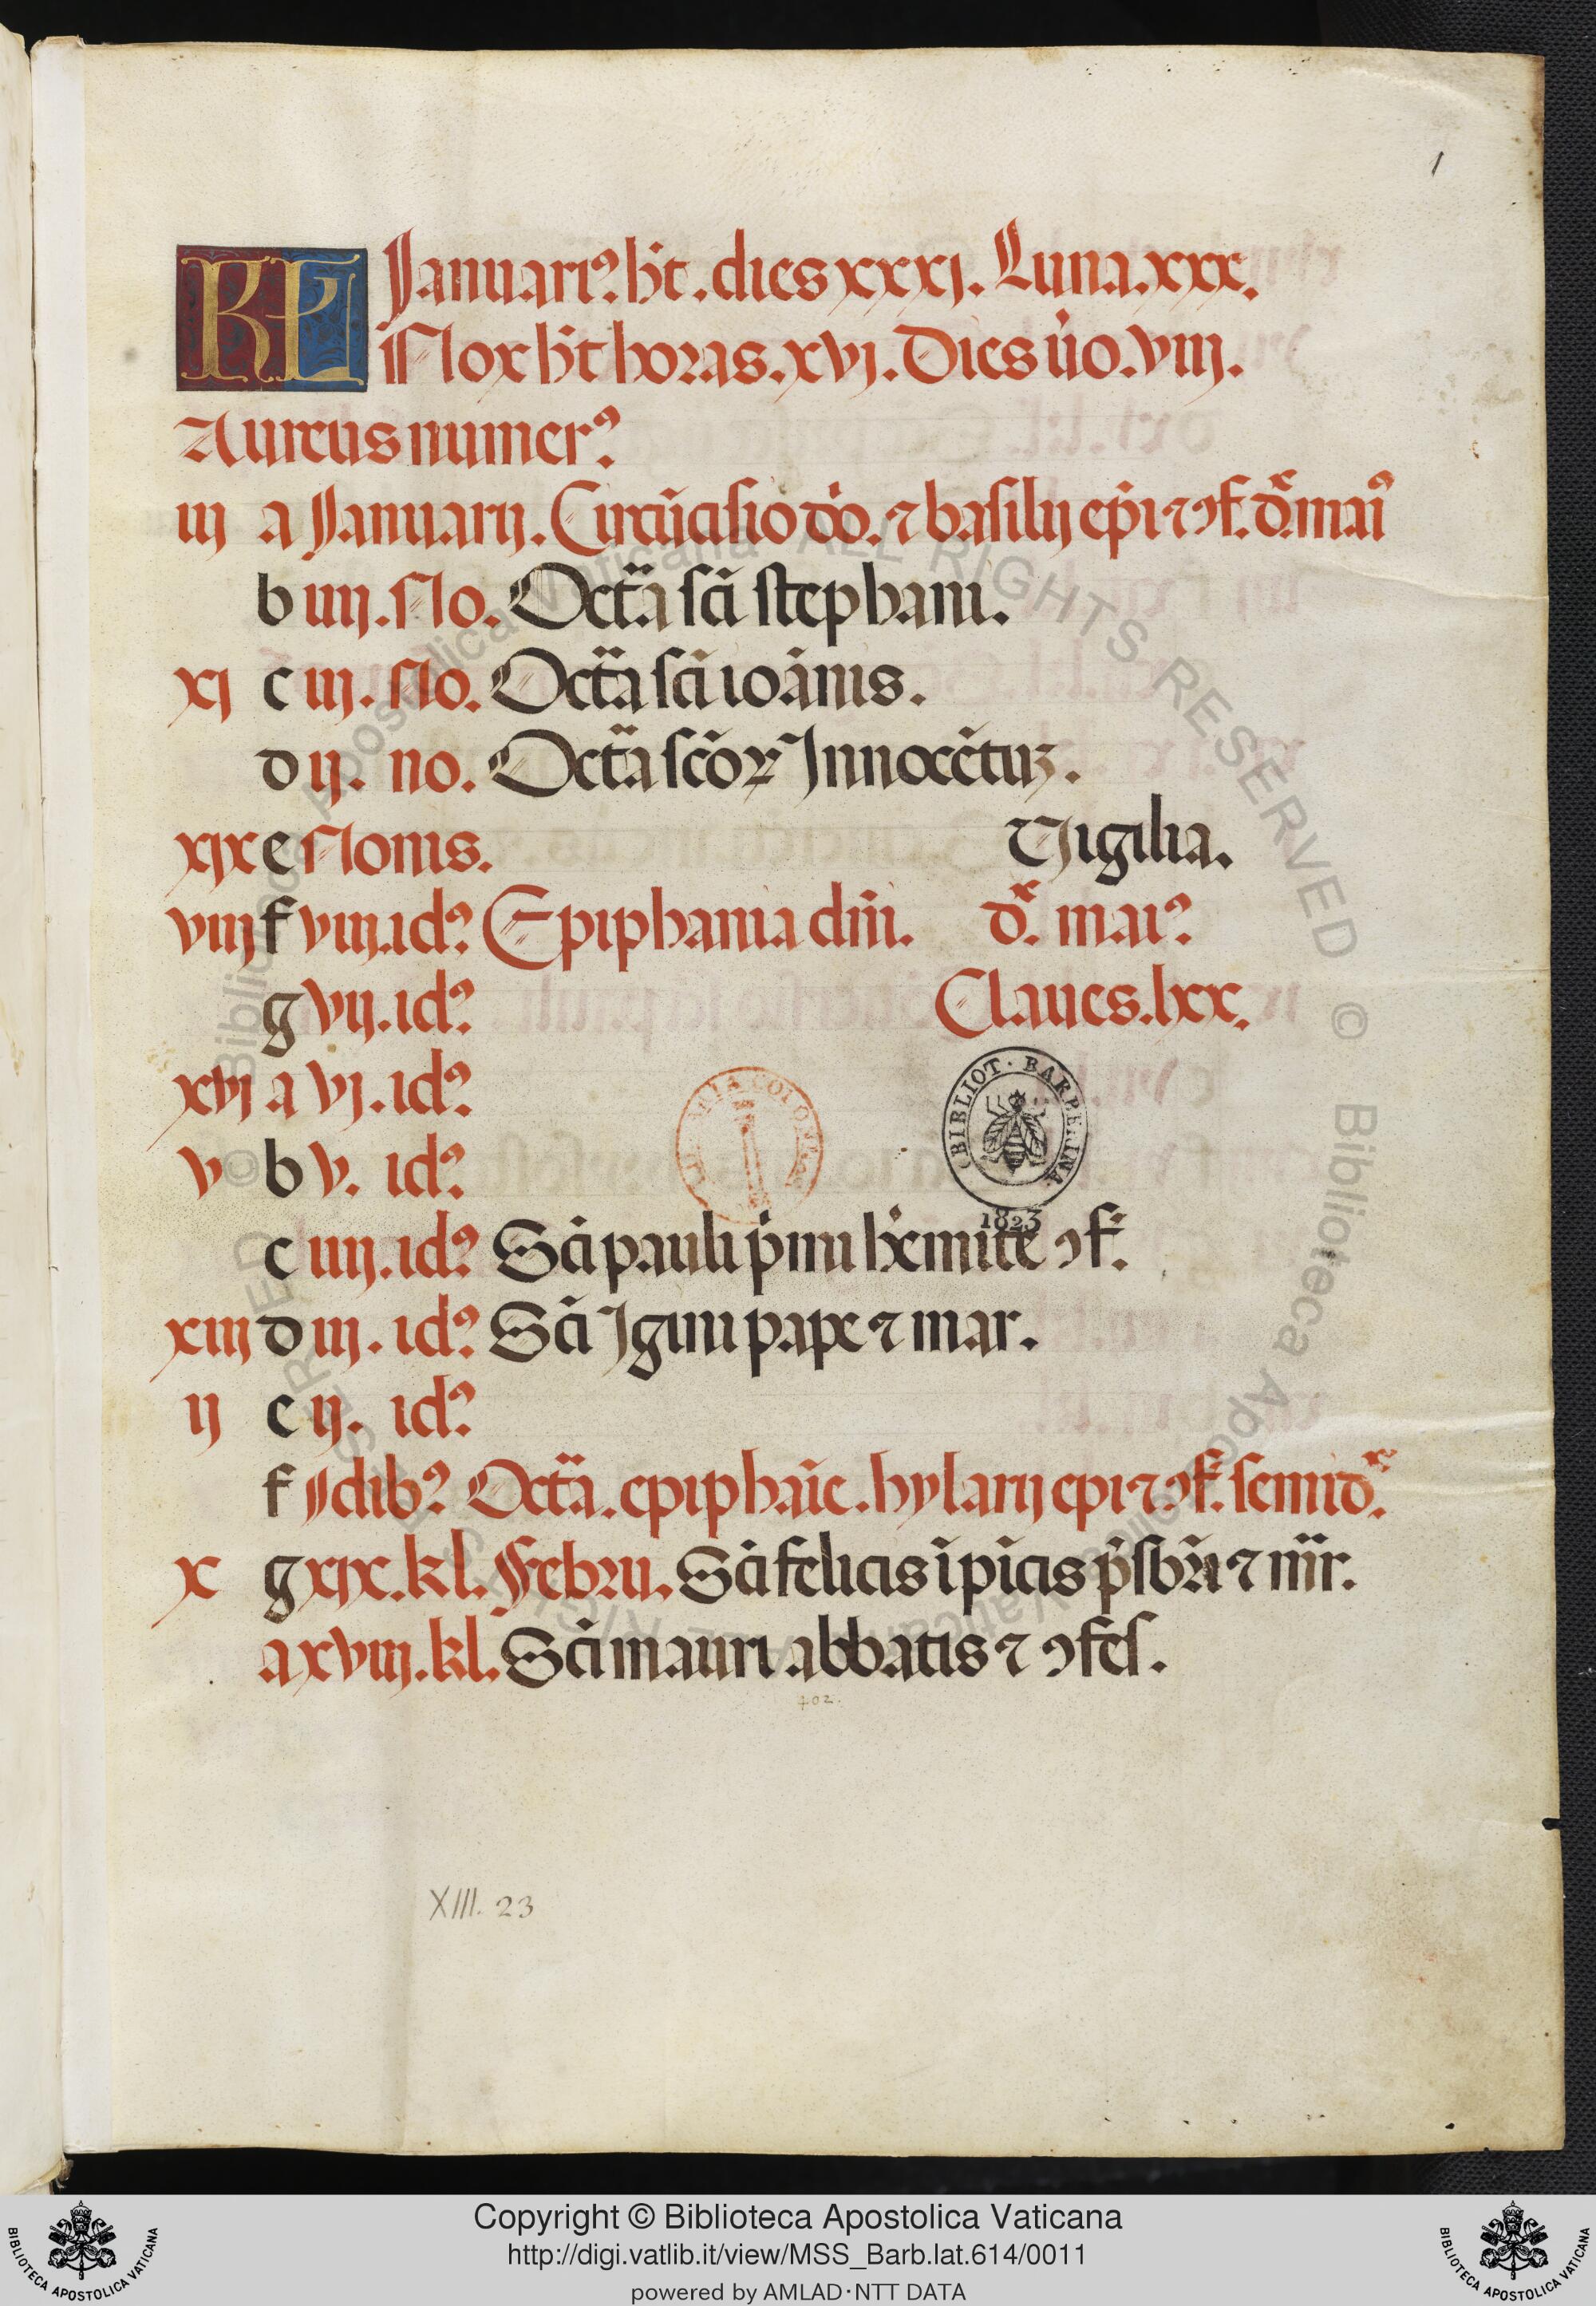 1
KL Januariꝰ hꝫt. dies xxxj. Luna. xxx.
Nox hꝫt horas. xvj. Dies ũo. viij.
Aureus numerꝰ
iij a Januarij. Circũcisio dõ. ⁊ basilij epĩ ⁊ ꝯf. dx̃. maiꝰ
b iiij. No. Octãa scĩ stephani.
xj c iij. No. Octãa scĩ ioãnis.
d ij. no. Octãa scõꝝ Innocẽtuꝫ.
xjx e Nonis. Vigilia.
viij f viij. idꝰ Epiphania dñi. dx̃. maiꝰ
g vij. idꝰ Claues. lxx.
xvj a vj. idꝰ
v b v. idꝰ
BIBLIOT · BARBERINA
1823
c iiij. idꝰ Scĩ pauli p̃mi hẽmite ꝯf.
xiij d iij. idꝰ Scĩ Igini pape ⁊ mar.
ij e ij. idꝰ
f Jdibꝰ Octãa. epiphaĩe. hylarij epi ⁊ ꝯf. semidx̃.
x g xjx. kl. Febru. Scĩ felicis ĩ pĩcis p̃sbr̃i ⁊ m̃r.
a xviij. kl. Scĩ mauri abbatis ⁊ ꝯfeſ.
402.
XIII. 23
© Biblioteca Apostolica Vaticana ALL RIGHTS RESERVED
© Biblioteca Apostolica Vaticana ALL RIGHTS RESERVED
Copyright © Biblioteca Apostolica Vaticana
http://digi.vatlib.it/view/MSS_Barb.lat.614/0011
powered by AMLAD·NTT DATA
BIBLIOTECA APOSTOLICA VATICANA
BIBLIOTECA APOSTOLICA VATICANA